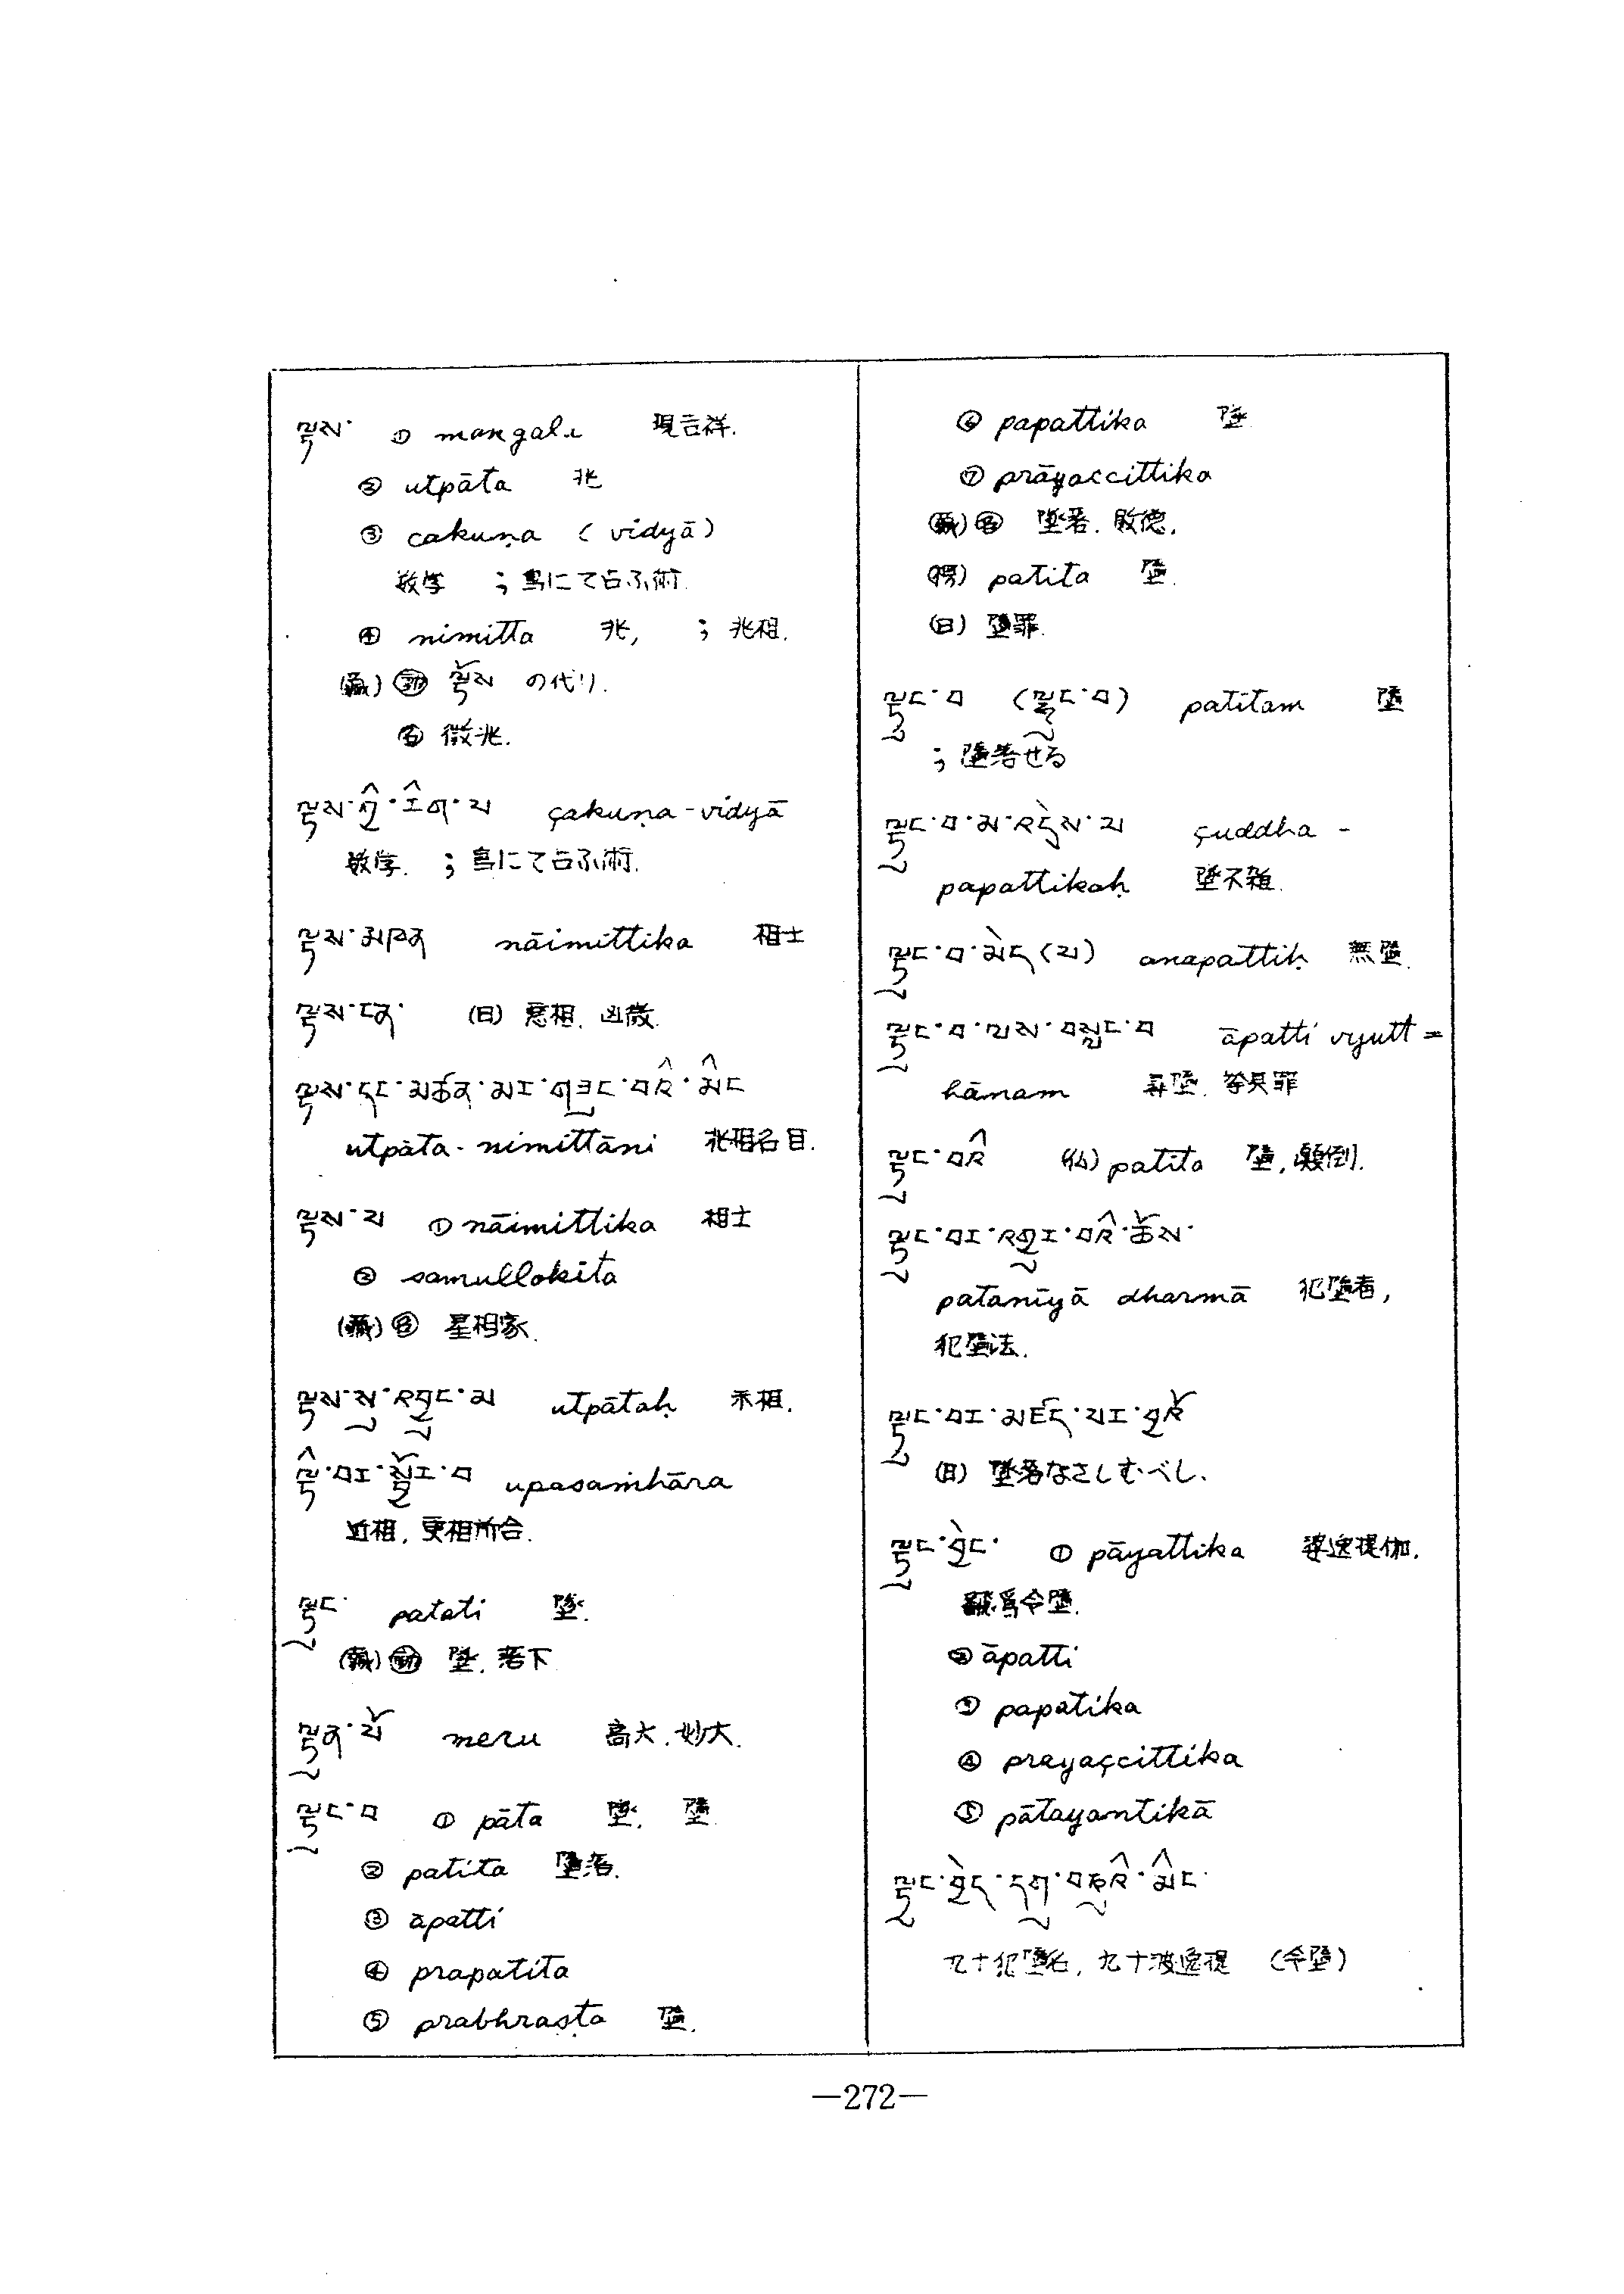 ལྟས་ ① mangale 現吉祥.
② utpāta 兆
③ cakuṇa (vidyā)
数学 ; 鳥にて占ふ術.
④ nimitta 兆, ; 兆相.
(蔵) 動 ལྟོས の代り.
名 徴兆.
ལྟས་ཀྱི་རིག་པ çakuṇa-vidyā
数学. ; 鳥にて占ふ術.
ལྟས་མཁན nāimittika 相士
ལྟས་ངན་ (日) 悪相. 凶徴.
ལྟས་དང་མཚན་མར་གཟུང་བའི་མིང
utpāta-nimittāni 兆相名目.
ལྟས་པ ① nāimittika 相士
② samullokita
(蔵) 名 星相家.
ལྟས་སུ་འབྱུང་མ utpātaḥ 禾相.
ལྟི་བར་སྦྱོར་བ upasaṁhāra
近相, 更相所合.
ལྟུང་ patati 墜.
(蔵) 動 墜. 落下
ལྟུན་པོ meru 高大. 妙大.
ལྟུང་བ ① pāta 墜. 墮.
② patita 墮落.
③ āpatti
④ prapatita
⑤ prabhraṣṭa 墮.
⑥ papattika 墮
⑦ prāyaccittika
(蔵) 名 墜落. 敗徳.
patita 墮.
(日) 墮罪.
ལྟུང་བ (ལྷུང་བ) patitam 墮
; 墮落せる
ལྟུང་བ་མ་འདྲེས་པ çuddha-
papattikaḥ 墮不雜.
ལྟུང་བ་མེད(པ) anapattiḥ 無墮.
ལྟུང་བ་ལས་བསླང་བ āpatti vyutt=
hānam 弃墮. 挙具罪
ལྟུང་བའི (仏) patita 墮, 顛倒.
ལྟུང་བར་འགྱུར་བའི་ཆོས་
patanīyā dharmā 犯墮者,
犯墮法.
ལྟུང་བར་མཛད་པར་བྱའོ
(日) 墜落なさしむべし.
ལྟུང་བྱེད་ ① pāyattika 婆逸提伽.
飜爲令墮.
② āpatti
③ papatika
④ prayaçcittika
⑤ pātayantikā
ལྟུང་བྱེད་དགུ་བཅུའི་མིང་
九十犯墮名, 九十波逸提 (令墮)
—272—